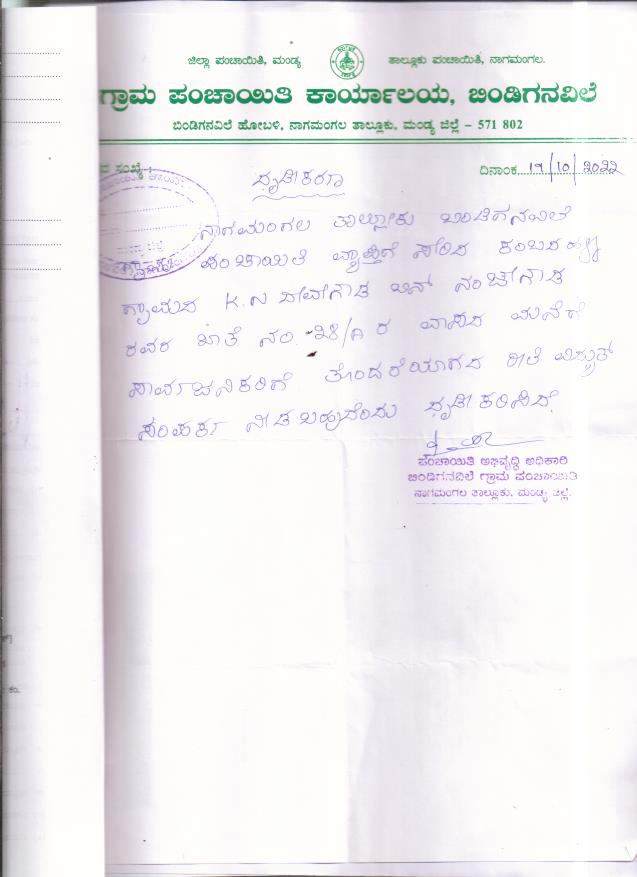 ಜಿಲ್ಲಾ ಪಂಚಾಯಿತಿ, ಮಂಡ್ಯ ತಾಲ್ಲೂಕು ಪಂಚಾಯಿತಿ, ನಾಗಮಂಗಲ.
ಗ್ರಾಮ ಪಂಚಾಯಿತಿ ಕಾರ್ಯಾಲಯ, ಬಿಂಡಿಗನವಿಲೆ
ಬಿಂಡಿಗನವಿಲೆ ಹೋಬಳಿ, ನಾಗಮಂಗಲ ತಾಲ್ಲೂಕು, ಮಂಡ್ಯ ಜಿಲ್ಲೆ – 571 802
ಸಂಖ್ಯೆ : ದಿನಾಂಕ 17/10/2022
ದೃಢೀಕರಣ
ನಾಗಮಂಗಲ ತಾಲ್ಲೂಕು ಬಿಂಡಿಗನವಿಲೆ
ಪಂಚಾಯಿತಿ ವ್ಯಾಪ್ತಿಗೆ ಸೇರಿದ
ಗ್ರಾಮದ K.N ದೇವೇಗೌಡ ಬಿನ್ ನಂಜೇಗೌಡ
ರವರ ಖಾತೆ ನಂ. 28/A ರ ವಾಸದ ಮನೆಗೆ
ಸಾರ್ವಜನಿಕರಿಗೆ ತೊಂದರೆಯಾಗದ ರೀತಿ ವಿದ್ಯುತ್
ಸಂಪರ್ಕ ನೀಡಬಹುದೆಂದು ದೃಢೀಕರಿಸಿದೆ.
ಪಂಚಾಯಿತಿ ಅಭಿವೃದ್ಧಿ ಅಧಿಕಾರಿ
ಬಿಂಡಿಗನವಿಲೆ ಗ್ರಾಮ ಪಂಚಾಯಿತಿ
ನಾಗಮಂಗಲ ತಾಲ್ಲೂಕು, ಮಂಡ್ಯ ಜಿಲ್ಲೆ.